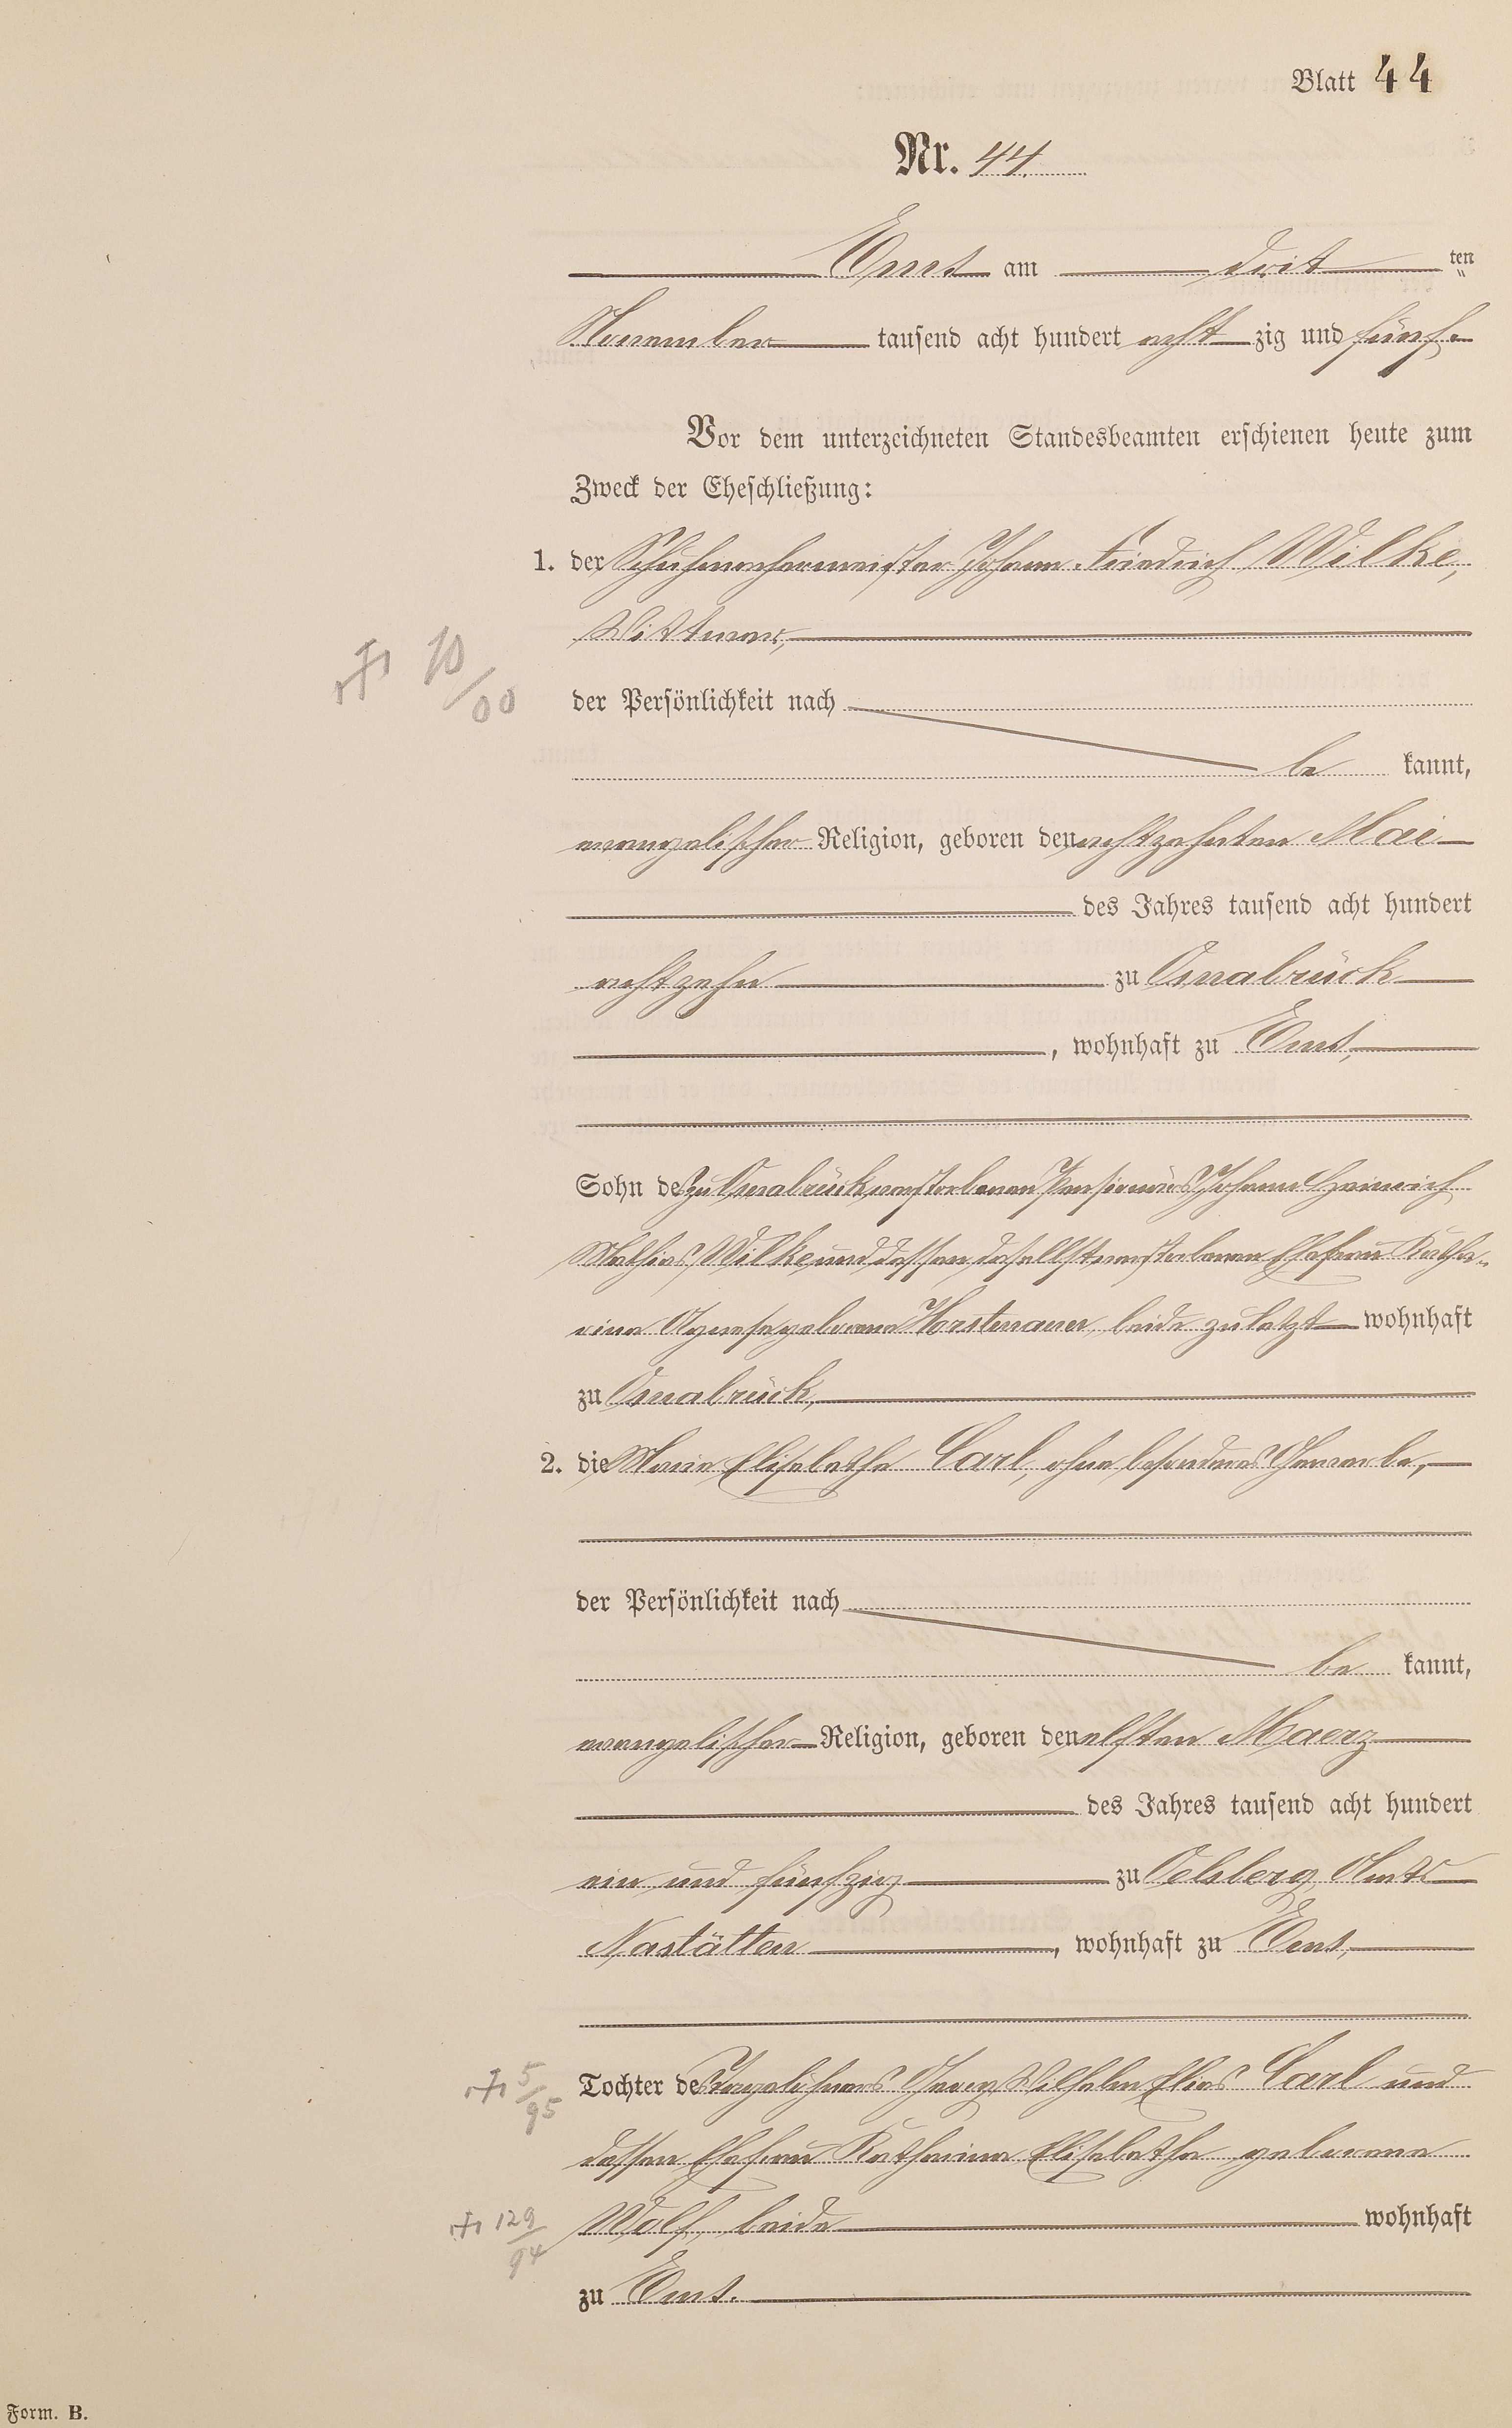 Blatt 44
Nr. 44.
Ems am drit ten
November tausend acht hundert acht zig und fünf.
Vor dem unterzeichneten Standesbeamten erschienen heute zum
Zweck der Eheschließung:
1. der Schuhmachermeister Johann Friedrich Wilke,
Wittwer,
der Persönlichkeit nach
be kannt,
evangelischer Religion, geboren den achtzehnten Mai
des Jahres tausend acht hundert
achtzehn zu Osnabrück
, wohnhaft zu Ems,
Sohn des zu Osnabrück verstorbenen Pensionärs Johann Heinrich
Mathias Wilke und dessen daselbst verstorbenen Ehefrau Katha-
rina Agnesa geborene Horstenauer, beide zuletzt wohnhaft
zu Osnabrück,
2. die Marie Elisabetha Carl, ohne besonderes Gewerbe,
der Persönlichkeit nach
be kannt,
evangelischer Religion, geboren den elften Maerz
des Jahres tausend acht hundert
ein und fünfzig zu Oelsberg Amts
Nastätten, wohnhaft zu Ems,
† 10/00
† 5/95
Tochter des Tagelöhners Georg Wilhelm Elias Carl und
dessen Ehefrau Katharina Elisabetha geborene
† 129/94
Wolf, beide wohnhaft
zu Ems.
Form. B.